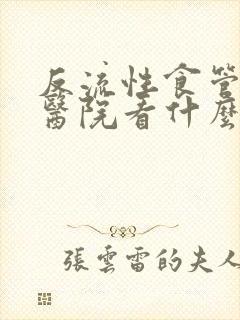 反流性食管
醫院看什麼
張雲雷的夫人